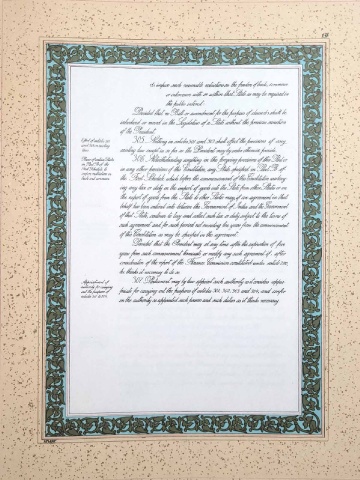 to impose such reasonable restrictions on the freedom of trade, commerce
or intercourse with or within that State as may be required in
the public interest:
Provided that no Bill or amendment for the purposes of clause (b) shall be
introduced or moved in the Legislature of a State without the previous sanction
of the President.
305. Nothing in articles 301 and 303 shall affect the provisions of any
existing law except in so far as the President may by order otherwise provide.
306. Notwithstanding anything in the foregoing provisions of this Part or
in any other provisions of this Constitution, any State specified in Part B of
the First Schedule which before the commencement of this Constitution was levy-
ing any tax or duty on the import of goods into the State from other States or on
the export of goods from the State to other States may, if an agreement in that
behalf has been entered into between the Government of India and the Government
of that State, continue to levy and collect such tax or duty subject to the terms of
such agreement and for such period not exceeding ten years from the commencement
of this Constitution as may be specified in the agreement:
Provided that the President may at any time after the expiration of five
years from such commencement terminate or modify any such agreement if, after
consideration of the report of the Finance Commission constituted under article 280,
he thinks it necessary to do so.
307. Parliament may by law appoint such authority as it considers appro-
priate for carrying out the purposes of articles 301, 302, 303 and 304, and confer
on the authority so appointed such powers and such duties as it thinks necessary.